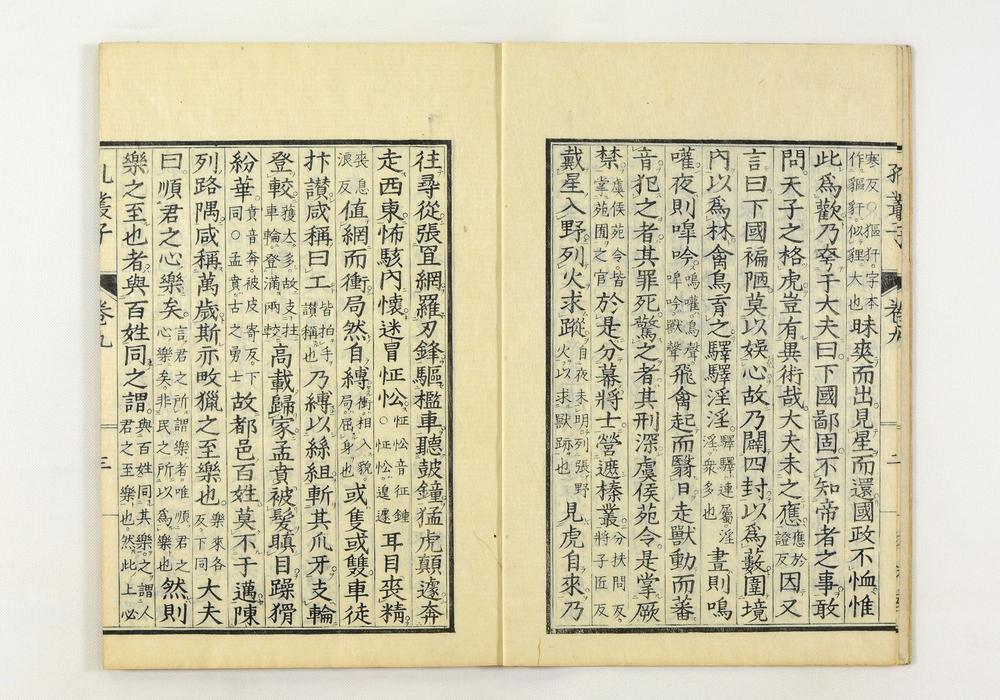 孔叢子 卷九 二
寒反○貙犴字本作貙豻似貍大也昧爽而出見星而還國政不恤惟
此爲歡乃夸于大夫曰下國鄙固不知帝者之事敢
問天子之格虎豈有異術哉大夫未之應應於證反因又
言曰下國褊陋莫以娛心故乃闢四封以爲藪圍境
內以爲林禽鳥育之驛驛淫淫驛驛連屬淫淫衆多也晝則鳴
嚾夜則嘷吟鳴嚾鳥聲嘷吟獸聲飛禽起而翳日走獸動而蕃
音犯之者其罪死驚之者其刑深虞侯苑令是掌厥
禁虞侯苑令皆掌苑囿之官於是分幕將士營遮榛叢分扶問反將子匠反
戴星入野列火求蹤自夜未明列張野火以求獸跡也見虎自來乃
往尋從張罝網羅刃鋒驅檻車聽鼓鐘猛虎顛遽奔
走西東怖駭內懷迷冒怔忪怔忪音征鍾○怔忪遑遽耳目喪精
喪息浪反值網而衝局然自縛衝相入貌局屈身也或隻或雙車徒
抃讃咸稱曰工皆拍手讃稱也乃縛以絲組斬其爪牙支輪
登較獲大多故支拄車輪登滿兩較高載歸家孟賁被髮瞋目躁猾
紛華賁音奔被皮寄反下同○孟賁古之勇士故都邑百姓莫不于邁陳
列路隅咸稱萬歲斯亦畋獵之至樂也樂來各反下同大夫
曰順君之心樂矣言君之所謂樂者唯順君之心樂矣非民之所以爲樂然則
樂之至也者與百姓同之謂與百姓同其樂之謂人君之至樂也然此上必
孔叢子 卷九 三